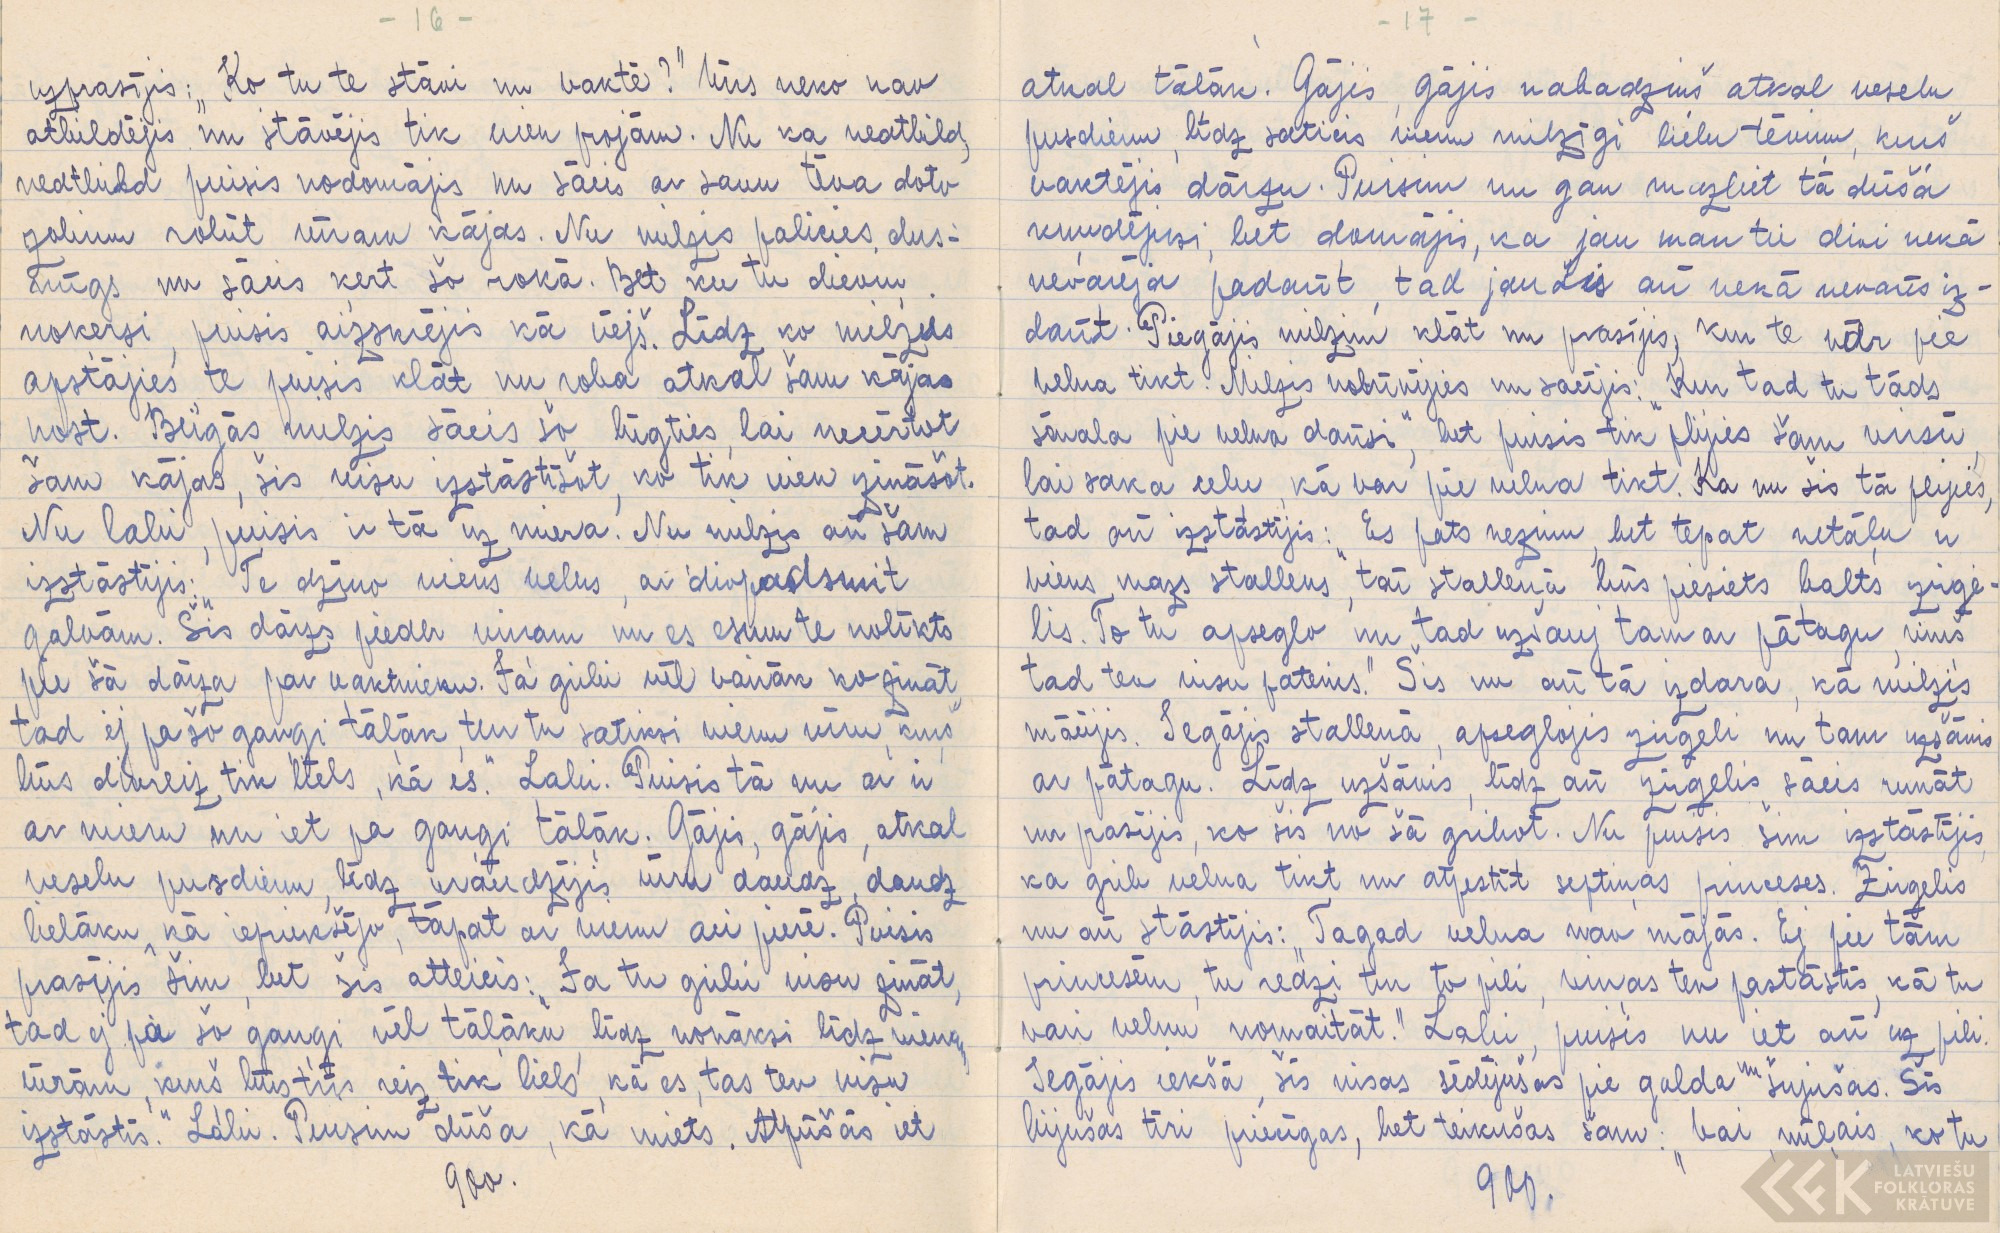 - 16 -
uzprasījis: „Ko tu te stāvi un vaktē?" Viņš neko nav
atbildējis un stāvējis tik vien projām. Nu ka neatbild,
neatbild puisis nodomājis un sācis ar savu tēva doto
zobinu robīt vīram kājas. Nu milzis palicies dus-
mīgs un sācis ķert šo rokā. Bet ku tu dieviņ
noķersi, puisis aizskrējis kā vējš. Līdz ko milzus
apstājies te puisis klāt un roba atkal šam kājas
nost. Beigās milzis sācis šo lūgties, lai necērtot
šam kājas, šis visu izstāstīšot, ko tik vien zināšot.
Nu labi, puisis ir tā uz miera. Nu milzis arī šam
izstāstījis: „Te dzīvo viens velns, ar divpadsmit
galvām. Šis dārzs pieder viņam un es esmu te nolikts
pie šā dārza par vaktnieku. Ja gribi vēl vairāk ko zināt
tad ej pa šo gangi tālāk, tur tu satiksi vienu vīru, kurš
būs divreiz tik liels, kā es." Labi. Puisis tā nu ar ir
ar mieru un iet pa gangi tālāk. Gājis, gājis, atkal
veselu pusdienu, līdz uraudzījis vīru daudz, daudz
lielāku, kā iepriekšējo, tāpat ar vienu aci pierē. Puisis
prasījis šim, bet šis atteicis: „Ja tu gribi visu zināt,
tad ej pa šo gangi vēl tālāku, līdz nonāksi līdz vienam
vīram, kurš būs trīs reiz tik liels, kā es, tas tev visu
izstāstīs." Labi. Puisim dūša, kā miets. Atpūšās iet
900.
- 17 -
atkal tālāk. Gājis, gājis nabadziņš atkal veselu
pusdienu, līdz saticis vienu milzīgi lielu tēviņu, kurš
vaktējis dārzu. Puisim nu gan mazliet tā dūšā
knudējusi, bet domājis, ka jau man tie divi nekā
nevarēja padarīt, tad jau šis arī nekā nevarēs iz-
darīt. Piegājis milzim klāt un prasījis, kur te var pie
velna tikt. Milzis nobrīnījies un sacījis: „Kur tad tu tāds
sīvala pie velna dausi", bet puisis tik plijies šam virsū,
lai saka ceļu, kā var pie velna tikt. Ka nu šis tā plijies,
tad arī izstāstījis: „Es pats nezinu, bet tepat netāļu ir
viens mazs stallens, tai stallenā būs piesiets balts zirģe-
lis. To tu apseglo un tad uzšauj tam ar pātagu, viņš
tad tev visu pateiks." Šis nu arī tā izdara, kā milzis
mācījis. Iegājis stallenā, apseglojis zirģeli un tam uzšāvis
ar pātagu. Līdz uzšāvis, līdz arī zirģelis sācis runāt
un prasījis, ko šis no šā gribot. Nu puisis šim izstāstījis,
ka grib velna tikt un atpestīt septiņas princeses. Zirģelis
nu arī stāstījis: „Tagad velna nav mājās. Ej pie tām
princesēm, tu redzi tur to pili, viņas tev pastāstīs, kā tu
vari velnu nomaitāt." Labi, puisis nu iet arī uz pili.
Iegājis iekšā, šīs visas sēdējušas pie galda un šujušas. Šīs
bijušas tīri priecīgas, bet teikušas šam: „Vai, mīļais, ko tu
900.
LATVIEŠU
FOLKLORAS
KRĀTUVE